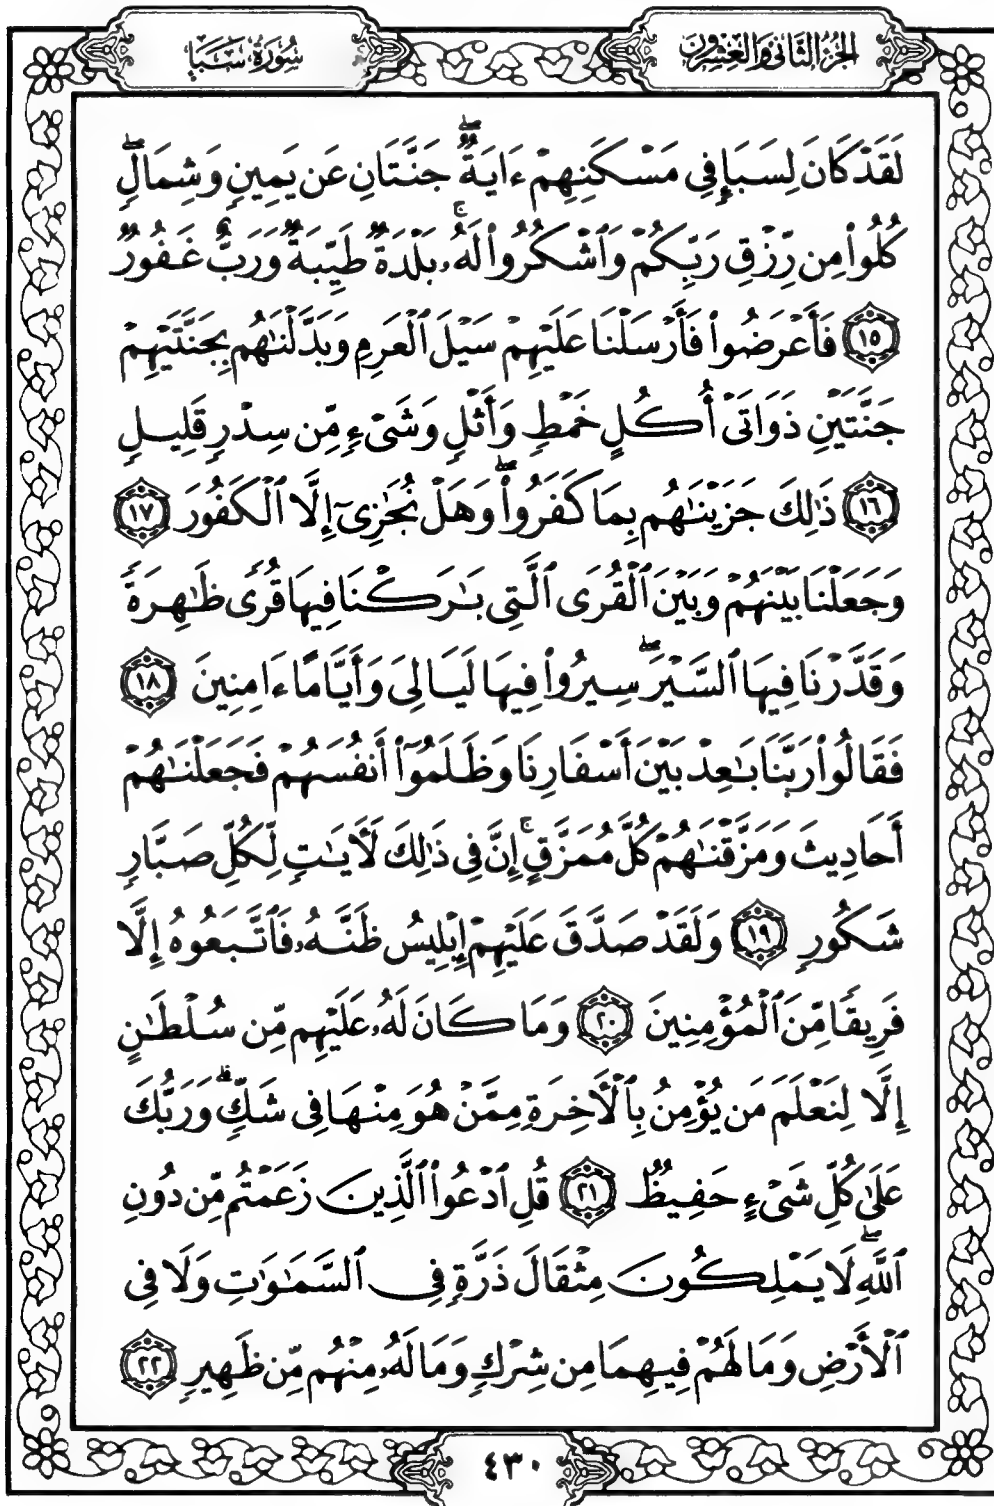 الجزء الثاني والعشرون
سورة سبإ
لَقَدْ كَانَ لِسَبَإٍ فِي مَسْكَنِهِمْ ءَايَةٌ ۖ جَنَّتَانِ عَن يَمِينٍ وَشِمَالٍ ۖ
كُلُوا۟ مِن رِّزْقِ رَبِّكُمْ وَٱشْكُرُوا۟ لَهُۥ ۚ بَلْدَةٌ طَيِّبَةٌ وَرَبٌّ غَفُورٌ
﴿١٥﴾ فَأَعْرَضُوا۟ فَأَرْسَلْنَا عَلَيْهِمْ سَيْلَ ٱلْعَرِمِ وَبَدَّلْنَـٰهُم بِجَنَّتَيْهِمْ
جَنَّتَيْنِ ذَوَاتَىْ أُكُلٍ خَمْطٍ وَأَثْلٍ وَشَىْءٍ مِّن سِدْرٍ قَلِيلٍ
﴿١٦﴾ ذَٰلِكَ جَزَيْنَـٰهُم بِمَا كَفَرُوا۟ ۖ وَهَلْ نُجَـٰزِىٓ إِلَّا ٱلْكَفُورَ ﴿١٧﴾
وَجَعَلْنَا بَيْنَهُمْ وَبَيْنَ ٱلْقُرَى ٱلَّتِى بَـٰرَكْنَا فِيهَا قُرًى ظَـٰهِرَةً
وَقَدَّرْنَا فِيهَا ٱلسَّيْرَ ۖ سِيرُوا۟ فِيهَا لَيَالِىَ وَأَيَّامًا ءَامِنِينَ ﴿١٨﴾
فَقَالُوا۟ رَبَّنَا بَـٰعِدْ بَيْنَ أَسْفَارِنَا وَظَلَمُوٓا۟ أَنفُسَهُمْ فَجَعَلْنَـٰهُمْ
أَحَادِيثَ وَمَزَّقْنَـٰهُمْ كُلَّ مُمَزَّقٍ ۚ إِنَّ فِى ذَٰلِكَ لَـَٔايَـٰتٍ لِّكُلِّ صَبَّارٍ
شَكُورٍ ﴿١٩﴾ وَلَقَدْ صَدَّقَ عَلَيْهِمْ إِبْلِيسُ ظَنَّهُۥ فَٱتَّبَعُوهُ إِلَّا
فَرِيقًا مِّنَ ٱلْمُؤْمِنِينَ ﴿٢٠﴾ وَمَا كَانَ لَهُۥ عَلَيْهِم مِّن سُلْطَـٰنٍ
إِلَّا لِنَعْلَمَ مَن يُؤْمِنُ بِٱلْـَٔاخِرَةِ مِمَّنْ هُوَ مِنْهَا فِى شَكٍّ ۗ وَرَبُّكَ
عَلَىٰ كُلِّ شَىْءٍ حَفِيظٌ ﴿٢١﴾ قُلِ ٱدْعُوا۟ ٱلَّذِينَ زَعَمْتُم مِّن دُونِ
ٱللَّهِ ۖ لَا يَمْلِكُونَ مِثْقَالَ ذَرَّةٍ فِى ٱلسَّمَـٰوَٰتِ وَلَا فِى
ٱلْأَرْضِ وَمَا لَهُمْ فِيهِمَا مِن شِرْكٍ وَمَا لَهُۥ مِنْهُم مِّن ظَهِيرٍ ﴿٢٢﴾
٤٣٠